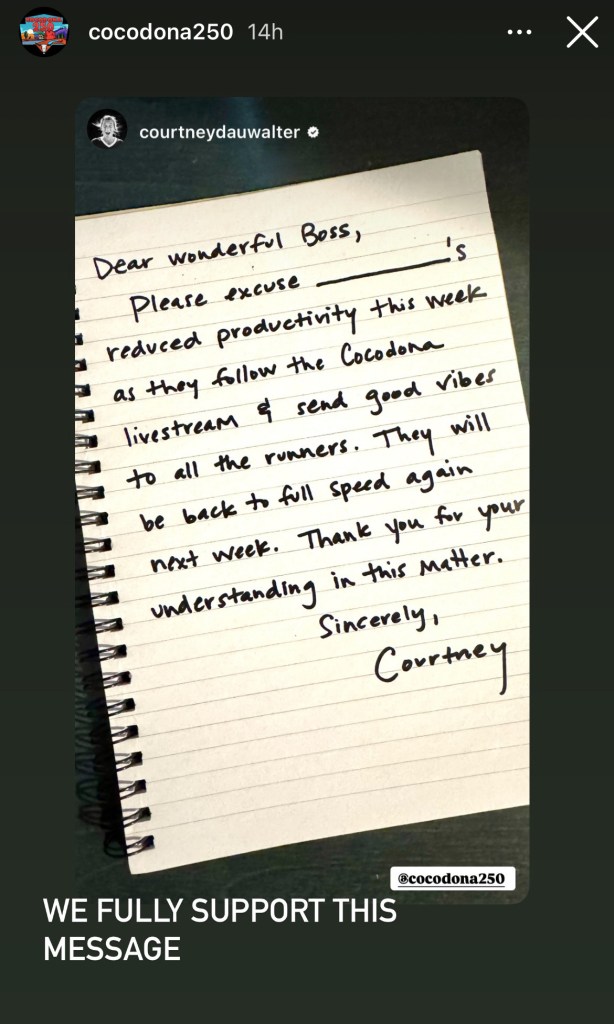 cocodona250 14h
courtneydauwalter
Dear wonderful Boss,
Please excuse __________'s
reduced productivity this week
as they follow the Cocodona
livestream & send good vibes
to all the runners. They will
be back to full speed again
next week. Thank you for your
understanding in this matter.
Sincerely,
Courtney
@cocodona250
WE FULLY SUPPORT THIS
MESSAGE